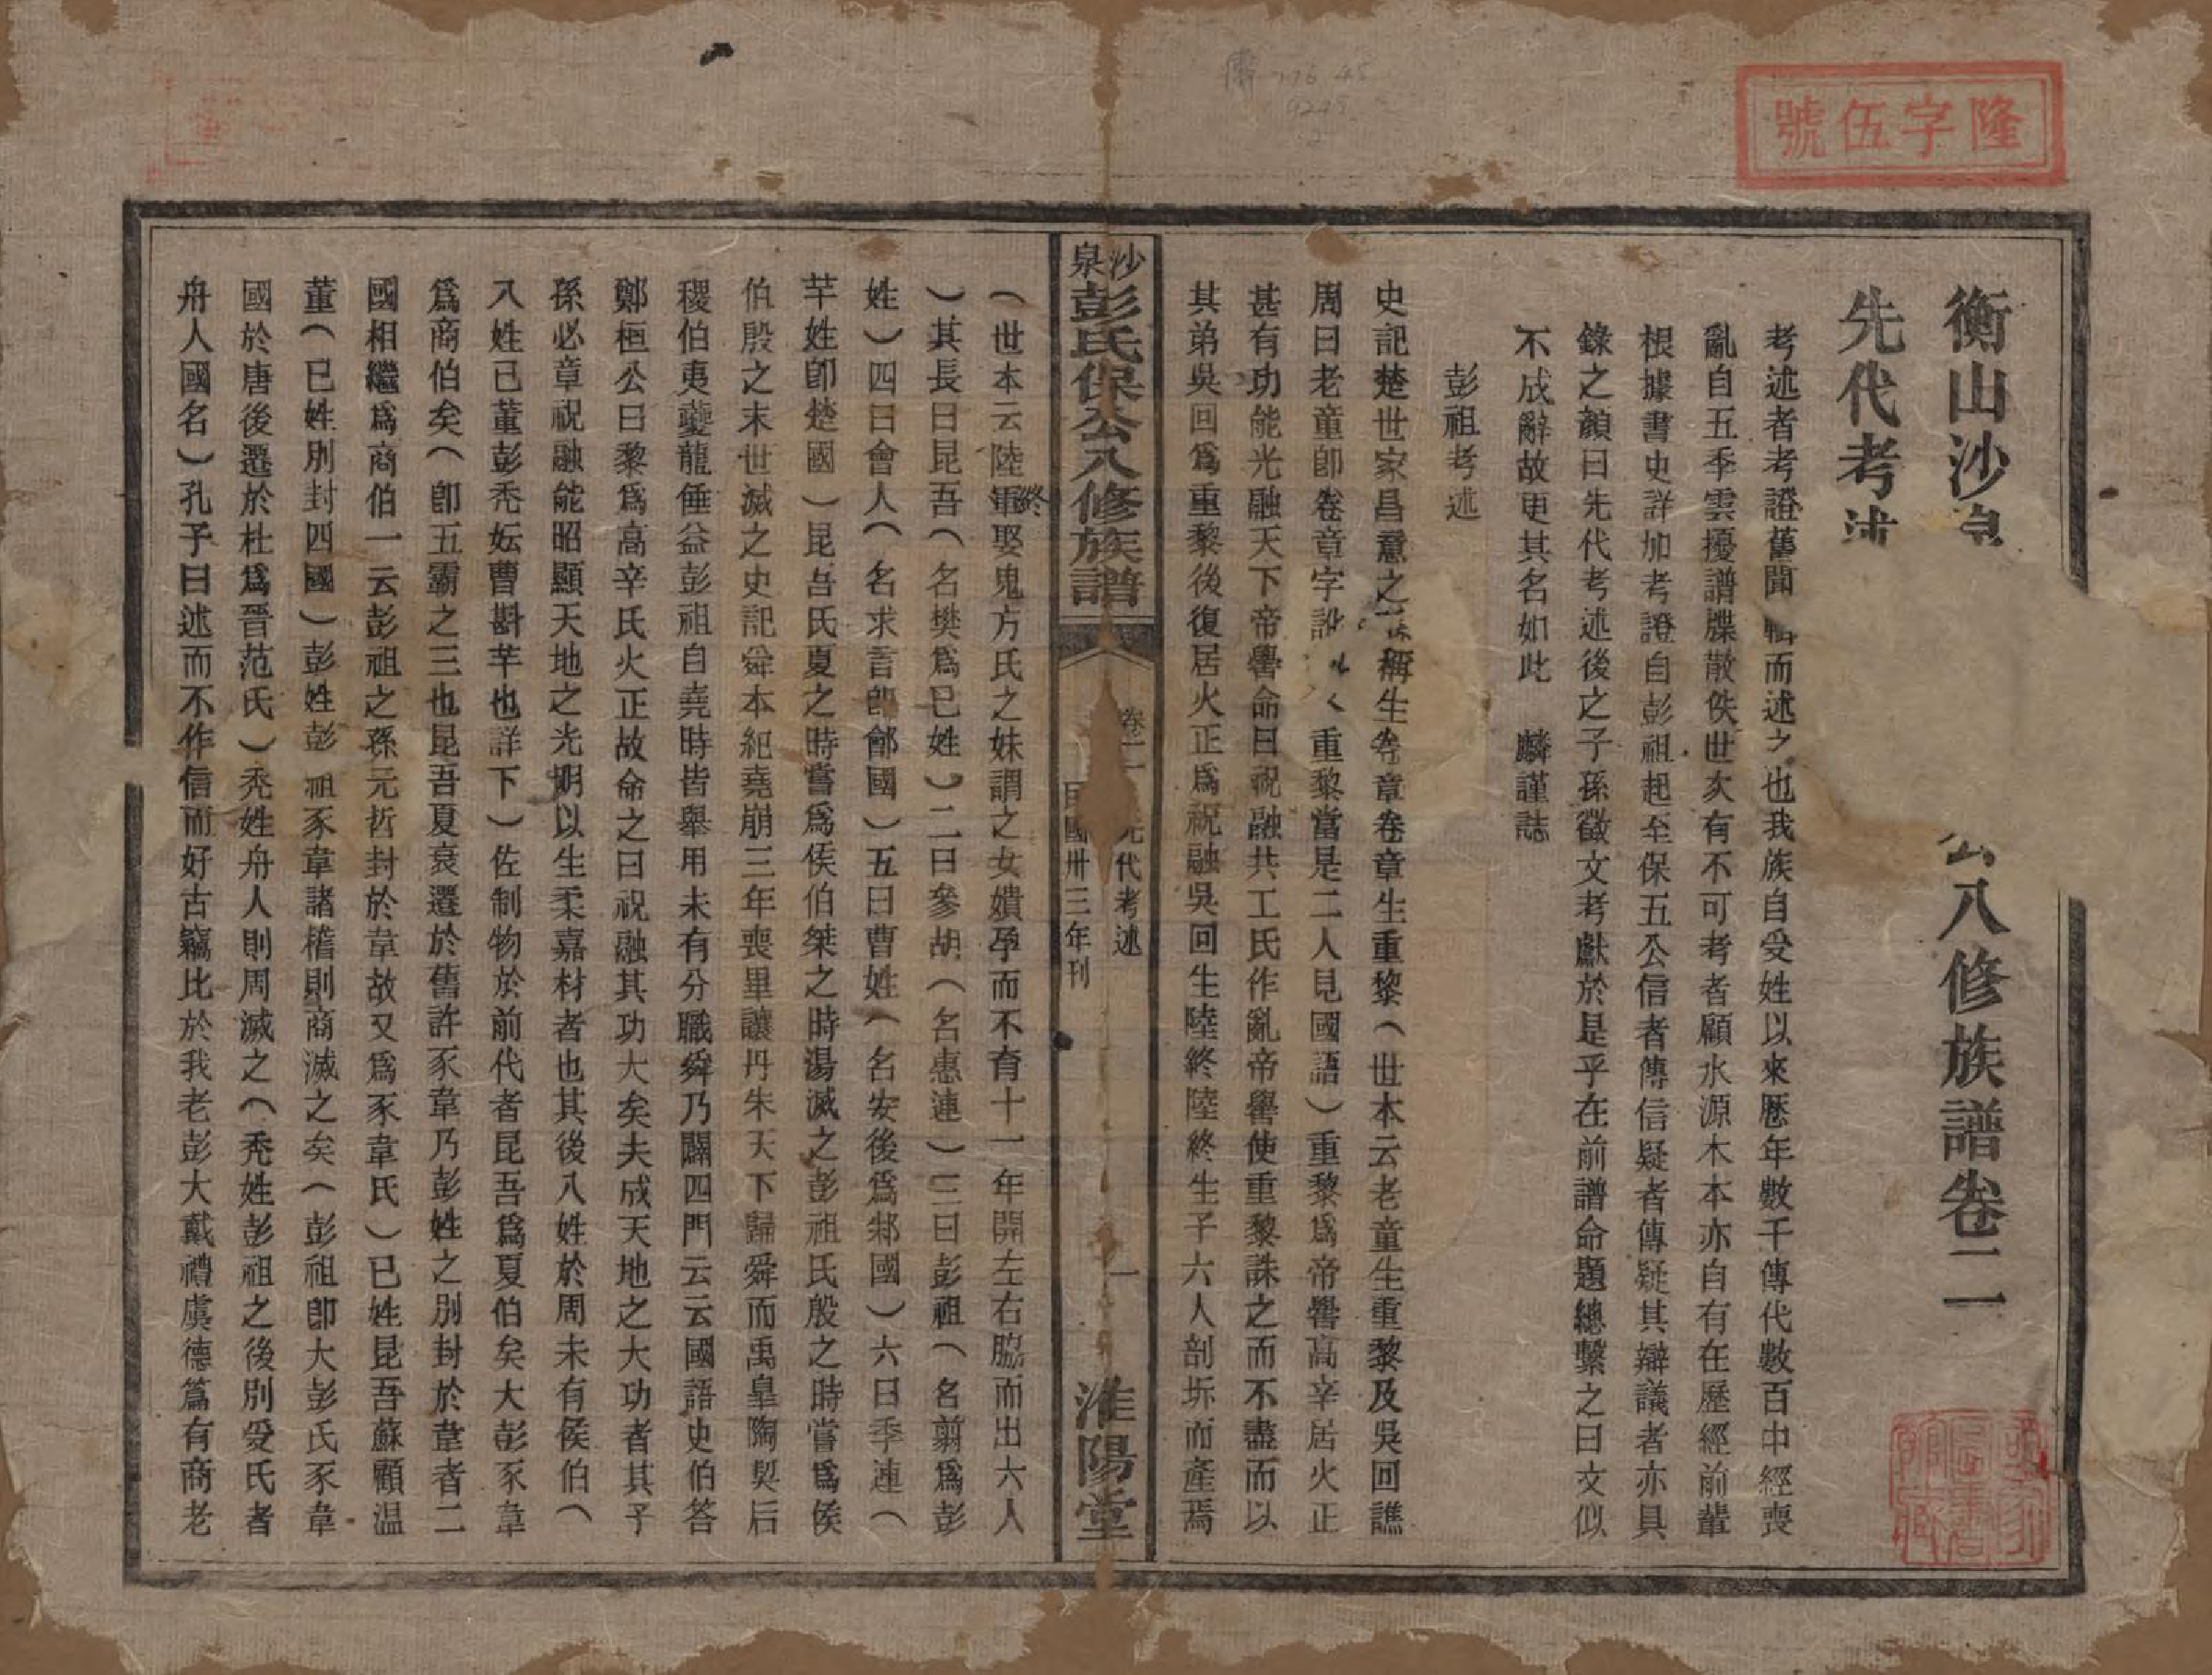 隆字伍號
衡山沙泉 公八修族譜卷二
先代考述
考述者考證舊聞輯而述之也我族自受姓以來歷年數千傳代數百中經喪
亂自五季雲擾譜牒散佚世次有不可考者顧水源木本亦自有在歷經前輩
根據書史詳加考證自彭祖起至保五公信者傳信疑者傳疑其辯議者亦具
錄之顏曰先代考述後之子孫徵文考獻於是乎在前譜命題總繫之曰文似
不成辭故更其名如此 麟謹誌
彭祖考述
史記楚世家昌意之 稱生卷章卷章生重黎(世本云老童生重黎及吳回譙
周曰老童卽卷章字訛 重黎當是二人見國語)重黎爲帝嚳高辛居火正
甚有功能光融天下帝嚳命曰祝融共工氏作亂帝嚳使重黎誅之而不盡而以
其弟吳回爲重黎後復居火正爲祝融吳回生陸終陸終生子六人剖坼而產焉
沙泉彭氏保公八修族譜
卷二 先代考述 一
民國卅三年刊
淮陽堂
(世本云陸終娶鬼方氏之妹謂之女嬇孕而不育十一年開左右脇而出六人
)其長曰昆吾(名樊爲己姓)二曰參胡(名惠連)三曰彭祖(名翦爲彭
姓)四曰會人(名求言卽鄶國)五曰曹姓(名安後爲邾國)六曰季連(
芊姓卽楚國)昆吾氏夏之時嘗爲侯伯桀之時湯滅之彭祖氏殷之時嘗爲侯
伯殷之末世滅之史記舜本紀堯崩三年喪畢讓丹朱天下歸舜而禹皐陶契后
稷伯夷夔龍倕益彭祖自堯時皆舉用未有分職舜乃闢四門云云國語史伯答
鄭桓公曰黎爲高辛氏火正故命之曰祝融其功大矣夫成天地之大功者其子
孫必章祝融能昭顯天地之光明以生柔嘉材者也其後八姓於周未有侯伯(
八姓己董彭禿妘曹斟芊也詳下)佐制物於前代者昆吾爲夏伯矣大彭豕韋
爲商伯矣(卽五霸之三也昆吾夏衰遷於舊許豕韋乃彭姓之別封於韋者二
國相繼爲商伯一云彭祖之孫元哲封於韋故又爲豕韋氏)已姓昆吾蘇顧温
董(已姓別封四國)彭姓彭祖豕韋諸稽則商滅之矣(彭祖卽大彭氏豕韋
國於唐後遷於杜爲晉范氏)禿姓舟人則周滅之(禿姓彭祖之後別受氏者
舟人國名)孔子曰述而不作信而好古竊比於我老彭大戴禮虞德篇有商老